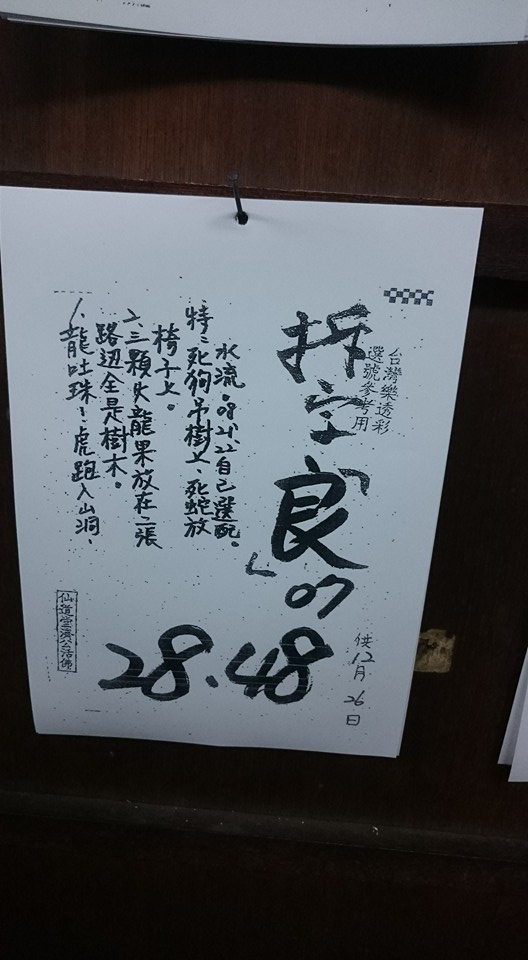 台灣樂透彩
選號參考用
拆字「良」07
28.48
供12月26日
1、龍吐珠、虎跑入山洞、
路边全是樹木。
2、三顆火龍果放在二張
椅子上。
特:死狗吊樹上、死蛇放
水流。08.21.22自己選配。
仙道堂濟公活佛